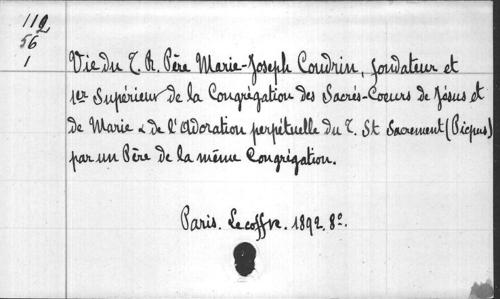 112
56
1
Vie du T. R. Père Marie-Joseph Coudrin, fondateur et
1er Supérieur de la Congrégation des Sacrés-Coeurs de Jésus et
de Marie & de l'Adoration perpétuelle du T. St Sacrement (Picpus)
par un Père de la même Congrégation.
Paris. Lecoffre. 1892. 8°.